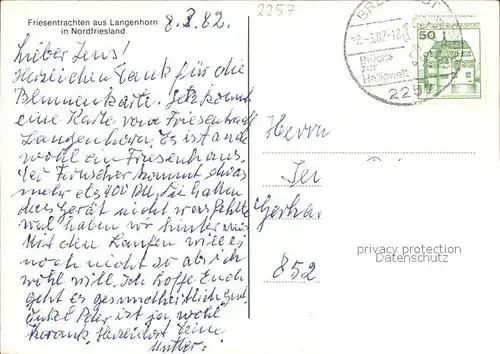 Friesentrachten aus Langenhorn
in Nordfriesland
8.3.82.
2257
BRE
-8.-3.82-18
Brücke
zur
Halligwelt
2257
50
Lieber Jens!
Herzlichen Dank für die
Blumenkarte. Jetzt kommt
eine Karte vom Friesentracht
Langenhorn. Es ist
wohl ein Friesenhaus.
Der Fernseher kommt etwas
mehr als 400 DM. Sie hatten
das Gerät nicht was fehlte
wir
Mit dem Laufen will es
noch nicht so als ich
wohl will. Ich hoffe Euch
geht es gesundheitlich gut
Onkel Peter ist ja wohl
krank. Herzlichst Deine
Mutter.
Herrn
Jen
Gerha
852
privacy protection
Datenschutz